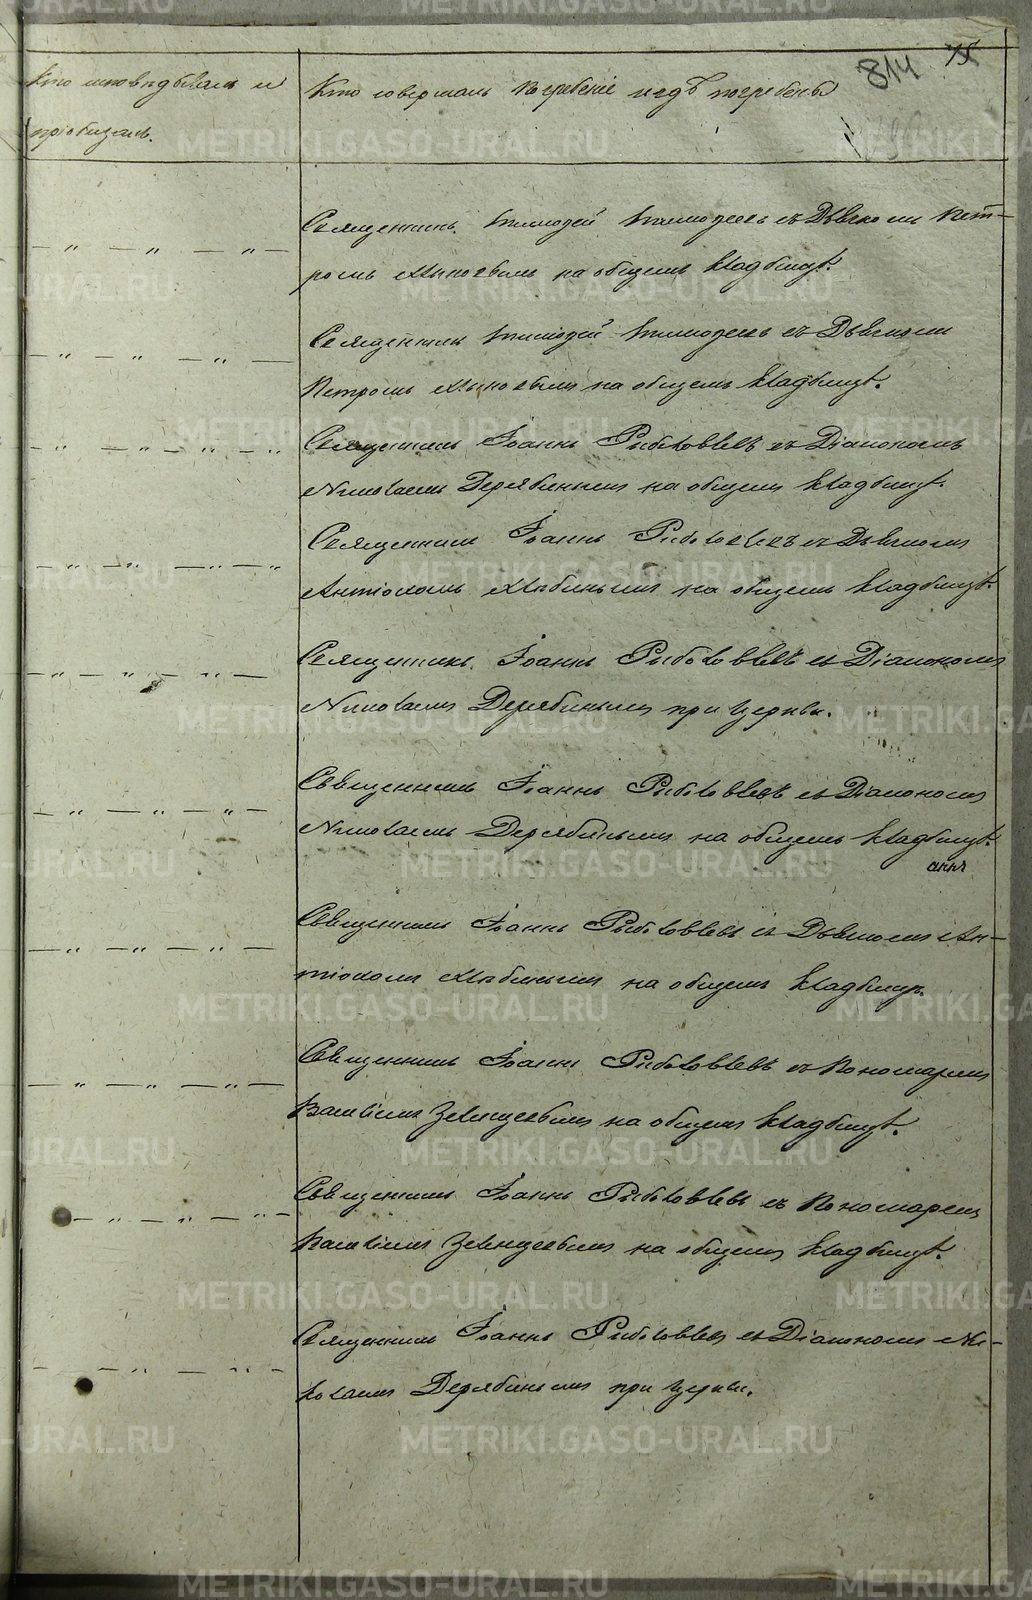 814 75
Кто исповѣдывалъ и
пріобщалъ.
Кто совершалъ погребеніе и гдѣ погребены
Священникъ Тимофей Тимофеевъ съ Дьячкомъ Пет-
ромъ на общемъ кладбищѣ.
Священникъ Тимофей Тимофеевъ съ Дьячкомъ
Петромъ на общемъ кладбищѣ.
Священникъ Іоаннъ съ Діакономъ
Николаемъ Дерябинымъ на общемъ кладбищѣ.
Священникъ Іоаннъ съ Дьячкомъ
Антіохомъ на общемъ кладбищѣ.
Священникъ Іоаннъ съ Діакономъ
Николаемъ Дерябинымъ при церкви.
Священникъ Іоаннъ съ Діакономъ
Николаемъ Дерябинымъ на общемъ кладбищѣ.
Священникъ Іоаннъ съ Дьячкомъ Ан-
тіохомъ на общемъ кладбищѣ.
Священникъ Іоаннъ съ Пономаремъ
Василіемъ на общемъ кладбищѣ.
Священникъ Іоаннъ съ Пономаремъ
Василіемъ на общемъ кладбищѣ.
Священникъ Іоаннъ съ Діакономъ Ни-
колаемъ Дерябинымъ при церкви.
METRIKI.GASO-URAL.RU